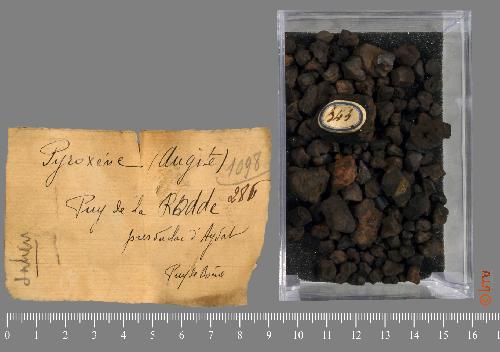 Pyroxène (Augite)
1098
286
Puy de la Rodde
près du lac d'Aydat
Puy de Dôme
343
0 1 2 3 4 5 6 7 8 9 10 11 12 13 14 15 16